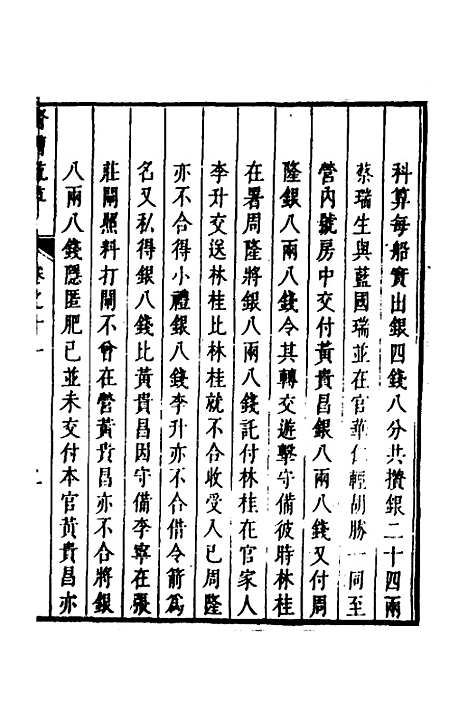 科算每船實出銀四錢八分共攢銀二十四兩
蔡瑞生與藍國瑞並在官華仁輕胡勝一同至
營內號房中交付黃貴昌銀八兩八錢又付周
隆銀八兩八錢令其轉交遊擊守備彼時林桂
在署周隆將銀八兩八錢託付林桂在官家人
李升交送林桂比林桂就不合收受入已周隆
亦不合得小禮銀八錢李升亦不合借令箭爲
名又私得銀八錢比黃貴昌因守備李寧在張
莊閘照料打閘不曾在營黃貴昌亦不合將銀
八兩八錢隱匿肥已並未交付本官黃貴昌亦
卷之十一